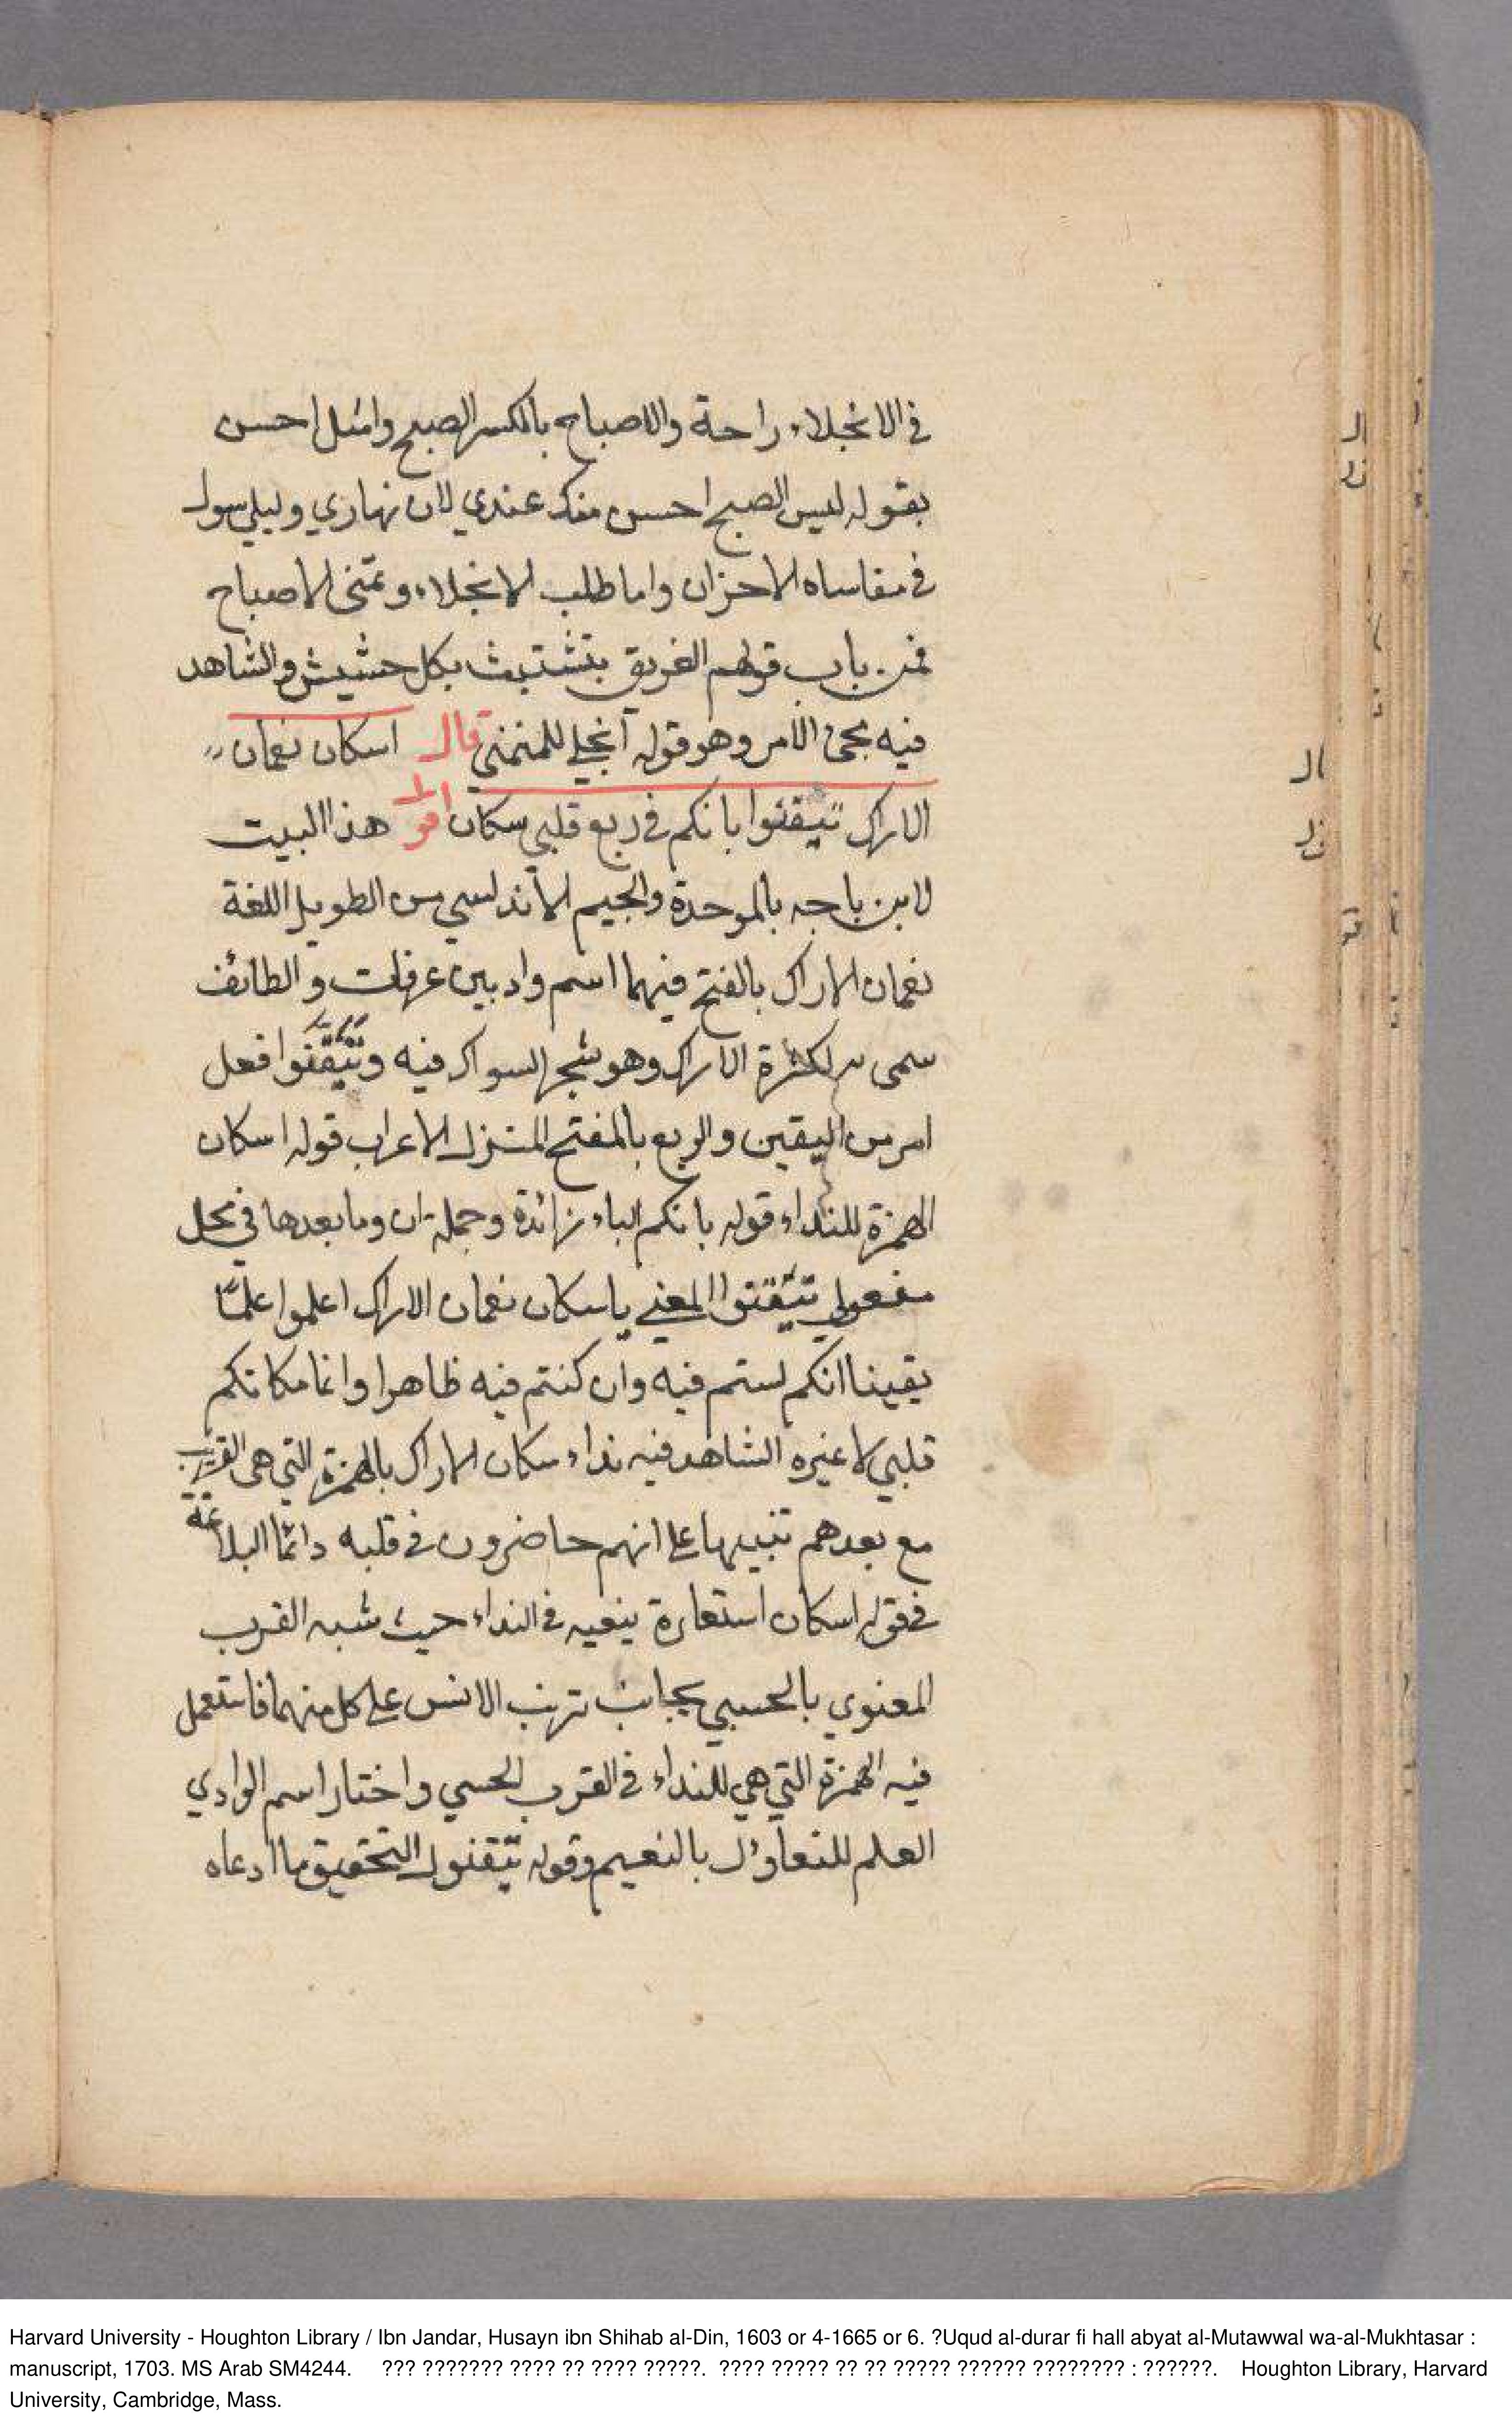 في الانجلاء راحة والاصباح بالكسر الصبح وامثل احسن
بقوله ليس الصبح احسن منك عندي لان نهاري وليلي سواء
في مقاساه الاحزان واما طلب الانجلاء وتمنى الاصباح
فمن باب قولهم الغريق يتشبث بكل حشيش والشاهد
فيه مجئ الامر وهو قوله انجلي للمتمني قال اسكان نعمان
الاراك تيقنوا بانكم في ربع قلبي سكان اقو هذا البيت
لابن باجه بالموحدة والجيم الاندلسي من الطويل اللغة
نعمان الاراك بالفتح فيهما اسم واد بين عرفات والطائف
سمى لكثرة الاراك وهو شجر السواك فيه وتيقنوا فعل
امر من اليقين والربع بالفتح المنزل الاعراب قوله اسكان
الهمزة للنداء قوله بانكم الباء زائدة وجملة ان وما بعدها في محل
مفعولي تيقنوا المعنى ياسكان نعمان الاراك اعلموا علما
يقينا انكم لستم فيه وان كنتم فيه ظاهرا وانما مكانكم
قلبي لا غيره الشاهد فيه نداء سكان الاراك بالهمزة التي هي للقريب
مع بعدهم تنبيها على انهم حاضرون في قلبه دائما البلاغة
في قوله اسكان استعارة تبعيه في النداء حيث شبه القرب
المعنوي بالحسي بجامع ترتب الانس على كل منهما فاستعمل
فيه الهمزة التي هي للنداء في القرب الحسي واختار اسم الوادي
العلم للتفاؤل بالنعيم وقوله تيقنوا لتحقيق ما ادعاه
Harvard University - Houghton Library / Ibn Jandar, Husayn ibn Shihab al-Din, 1603 or 4-1665 or 6. ?Uqud al-durar fi hall abyat al-Mutawwal wa-al-Mukhtasar :
manuscript, 1703. MS Arab SM4244. ??? ??????? ???? ?? ???? ?????. ???? ????? ?? ?? ????? ?????? ???????? : ??????. Houghton Library, Harvard
University, Cambridge, Mass.